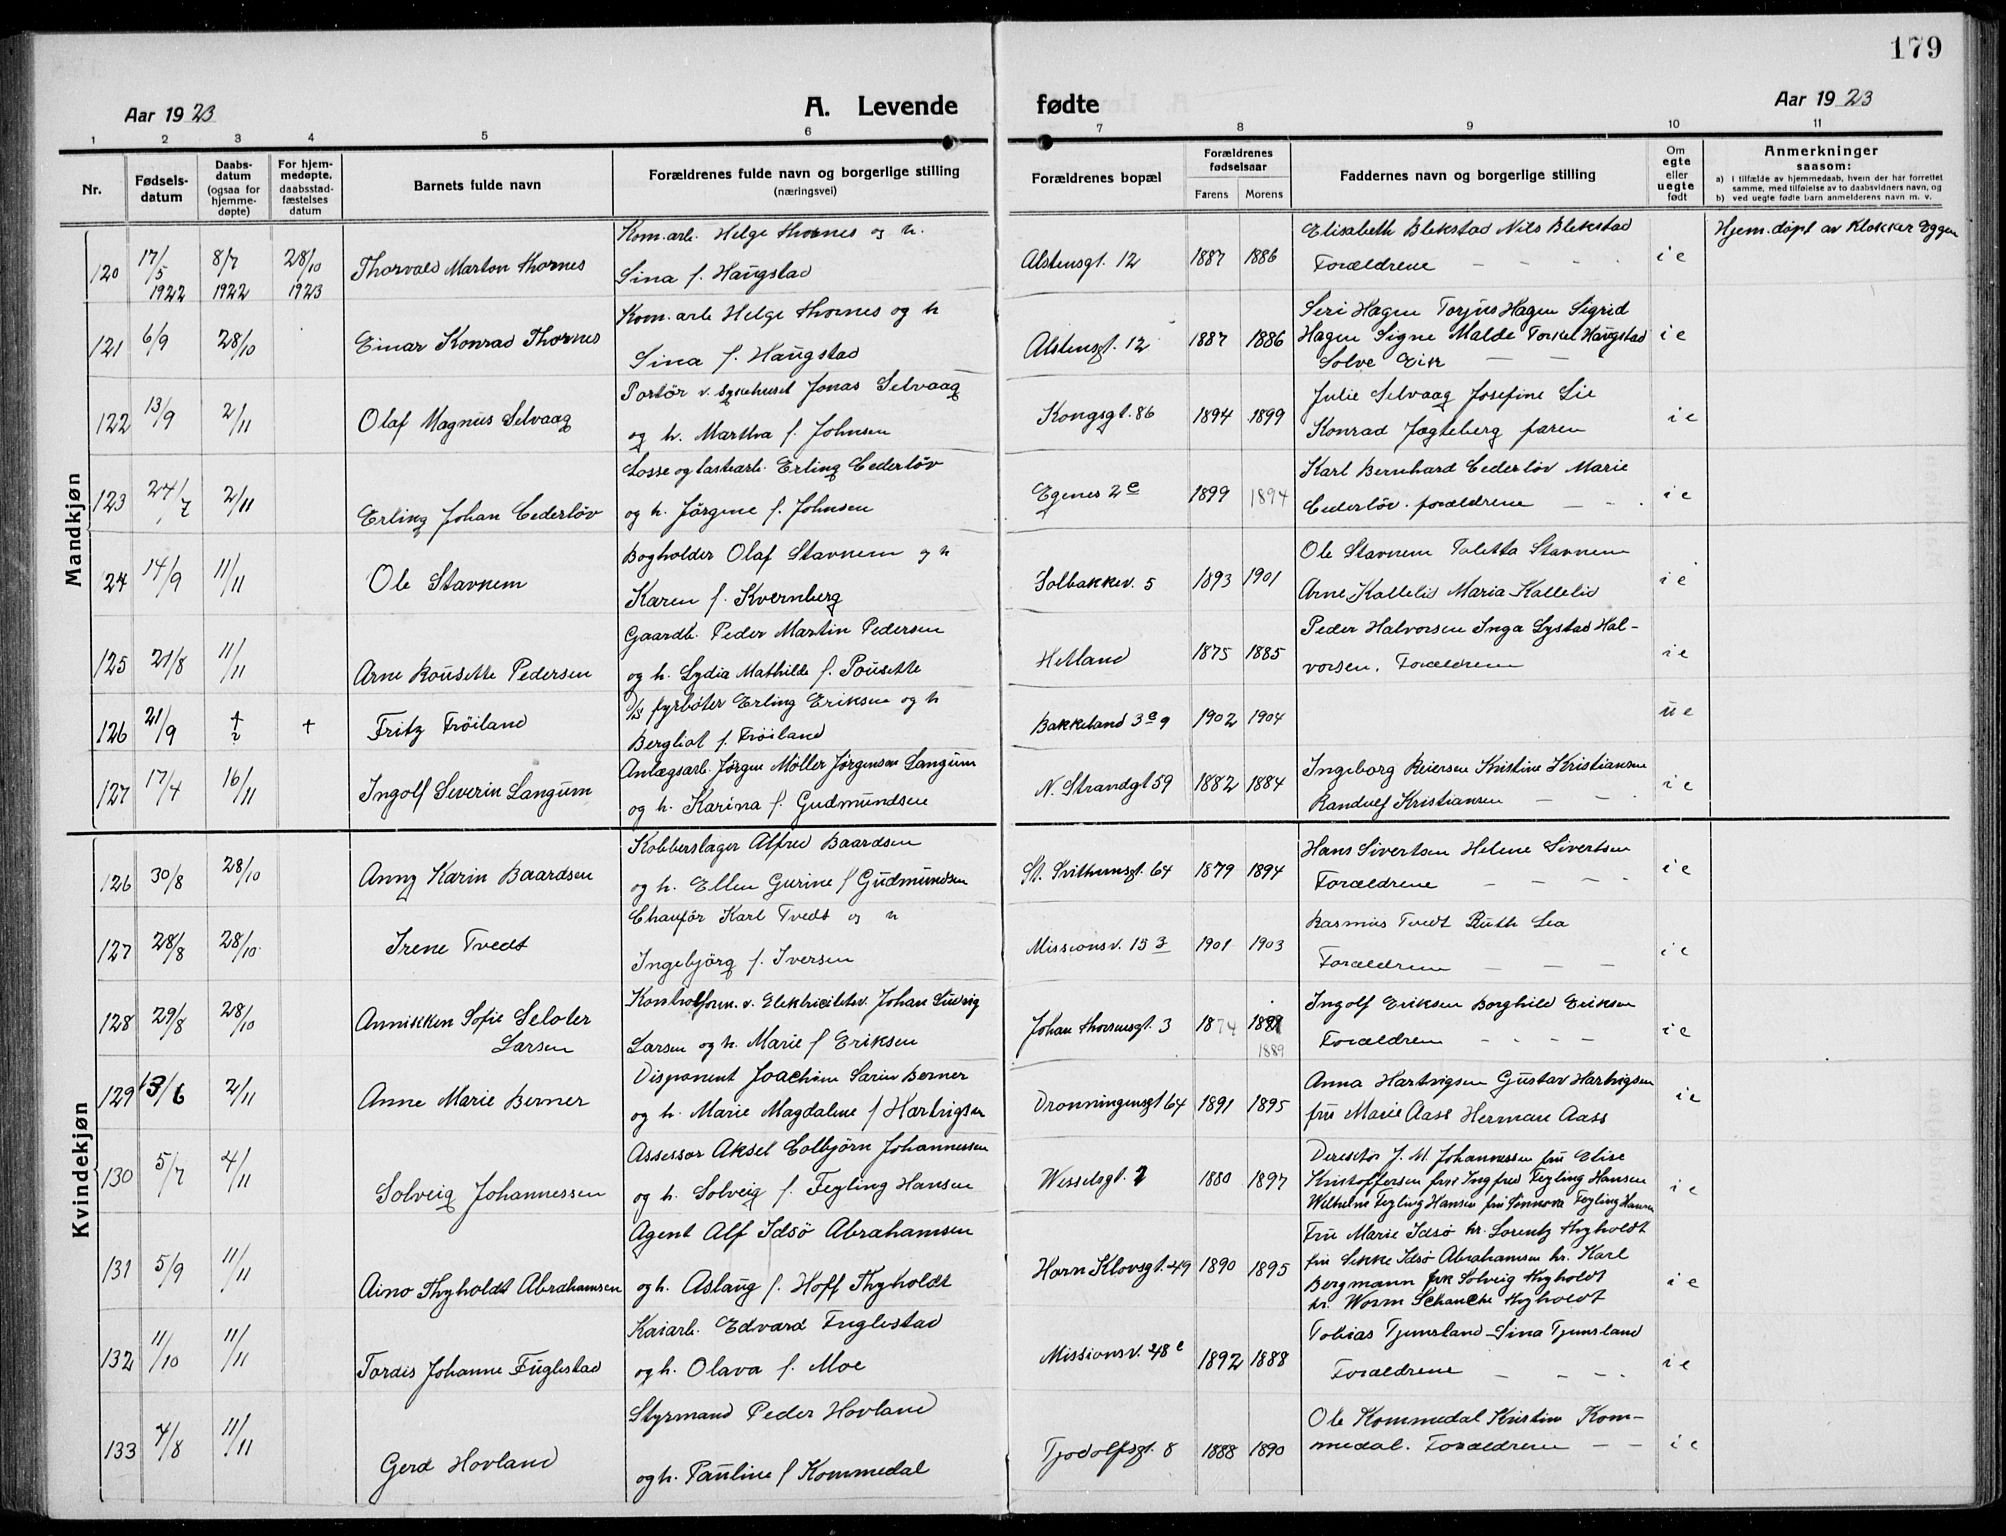 179
Aar 1923 A. Levende fødte Aar 1923
1 2 3 4 5 6 7 8 9 10 11
Nr. Fødselsdatum Daabsdatum (ogsaa for hjemmedøpte) For hjemmedøpte, daabsstadfæstelses datum Barnets fulde navn Forældrenes fulde navn og borgerlige stilling (næringsvei) Forældrenes bopæl Forældrenes fødselsaar Farens Morens Faddernes navn og borgerlige stilling Om egte eller uegte født Anmerkninger saasom:
a) i tilfælde av hjemmedaab, hvem der har forrettet samme, med tilføielse av to daabsvidners navn, og
b) ved uegte fødte barn anmelderens navn m. v.
Mandkjøn
120 17/5 1922 8/7 1922 28/10 1923 Thorvald Marton Thornes Kom.arb. Helge Thornes og h. Alstensgt. 12 1887 1886 Elisabeth Blekstad Nils Blekstad i e Hjem.døpt av Klokker Eggen
Sina f. Haugstad Forældrene
121 6/9 28/10 Einar Konrad Thornes Kom.arb Helge Thornes og h Alstensgt. 12 1887 1886 Seri Hagen Torjus Hagen Sigrid i e
Sina f. Haugstad Hagen Signe Malde Torkel Haugstad
Solve Eik
122 13/9 2/11 Olaf Magnus Selvaag Portør v. sykehuset Jonas Selvaag Kongsgt. 86 1894 1899 Julie Selvaag Josefine Lie i e
og h. Martha f. Johnsen Konrad Jøgteberg faren
123 24/7 2/11 Erling Johan Cederløv Losse og lastearb. Erling Cederløv Egenes 2c 1899 1894 Karl Bernhard Cederløv Marie i e
og h. Jørgine f. Johnsen Cederløv. forældrene
124 14/9 11/11 Ole Stavnem Bogholder Olaf Stavnem og h Solbakkev. 5 1893 1901 Ole Stavnem Toletta Stavnem i e
Karen f. Kvernberg Arne Kallelid Maria Kallelid
125 21/8 11/11 Arne Pousette Pedersen Gaardb. Peder Martin Pedersen Hetland 1875 1885 Peder Halvorsen Inga Lystad Hal-
og h. Lydia Mathilde f. Pousette vorsen. Forældrene i e
126 21/9 † † Fritz Frøiland D/s fyrbøter Erling Eriksen og h Bakkeland 3e 9 1902 1904 u e
Bergliot f. Frøiland
127 17/4 16/11 Ingolf Severin Langum Anlægsarb. Jørgen Møller Jørgensen Langum N. Strandgt 59 1882 1884 Ingeborg Reiersen Kristine Kristiansen i e
og h. Karina f. Gudmundsen Randulf Kristiansen
Kvindekjøn
126 30/8 28/10 Anny Karin Baardsen Kobberslager Alfred Baardsen St. Svithunsgt. 64 1879 1894 Hans Sivertsen Helene Sivertsen i e
og h. Ellen Gurine f Gudmundsen Forældrene
127 28/8 28/10 Irene Tvedt Chauför Karl Tvedt og h Missionsv. 15 3 1901 1903 Rasmus Tvedt Ruth Lea i e
Ingebjörg f. Iversen Forældrene
128 29/8 28/10 Annikken Sofie Seloter Larsen Kontrolform. v. Elektricitetsv. Johan Ludvig Johan Thorsensgt. 3 1874 1889 Ingolf Eriksen Borghild Eriksen i e
Larsen og h. Marie f Eriksen Forældrene
129 13/6 2/11 Anne Marie Berner Disponent Joachim Sarin Berner Dronningensgt 64 1891 1895 Anna Hartvigsen Gustav Hartvigsen i e
og h. Marie Magdalene f Hartvigsen fru Marie Aass Herman Aass
130 5/7 4/11 Solveig Johannessen Assessor Aksel Colbjørn Johannessen Wesselsgt. 1880 1897 Direktør J. M. Johannessen fru Elise
og h. Solveig f. Feyling Hansen Kristoffersen frk Ingfred Feyling Hansen i e
Wilhelm Feyling Hansen fru Sunnova Feyling Hansen
131 5/9 11/11 Aino Thyholdt Abrahamsen Agent Alf Idsø Abrahamsen Horn Klovsgt. 49 1890 1895 Fru Marie Idsø hr. Lorentz Thyholdt
og h. Aslaug f. Hoff Thyholdt fru Sekke Idsø Abrahamsen hr. Karl
Bergmann frk Solveig Thyholdt i e
hr. Worm Schanche Thyholdt
132 11/10 11/11 Tordis Johanne Fuglestad Kaiarb. Edvard Fuglestad Missionsv. 48c 1892 1888 Tobias Tjemsland Sina Tjemsland i e
og h. Olava f. Moe Forældrene
133 4/8 11/11 Gerd Hovland Styrmand Peder Hovland Tjodolfsgt. 8 1888 1890 Ole Kommedal Kristin Kom-
og h. Pauline f Kommedal medal. Forældrene i e